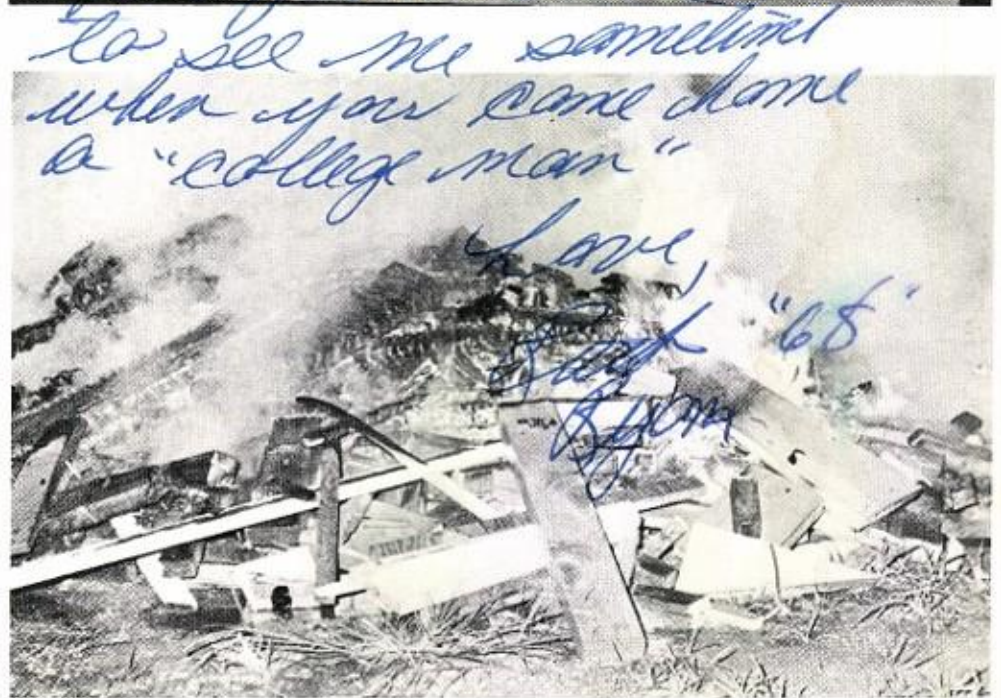 to see me sometime
when you come home
a "college man"
Love,
"68"
Ryan